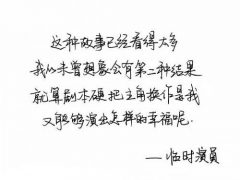 这种故事已经看得太多
我从未曾想象会有第二种结果
就算剧本硬把主角换作是我
又能够演出怎样的幸福呢.
——临时演员